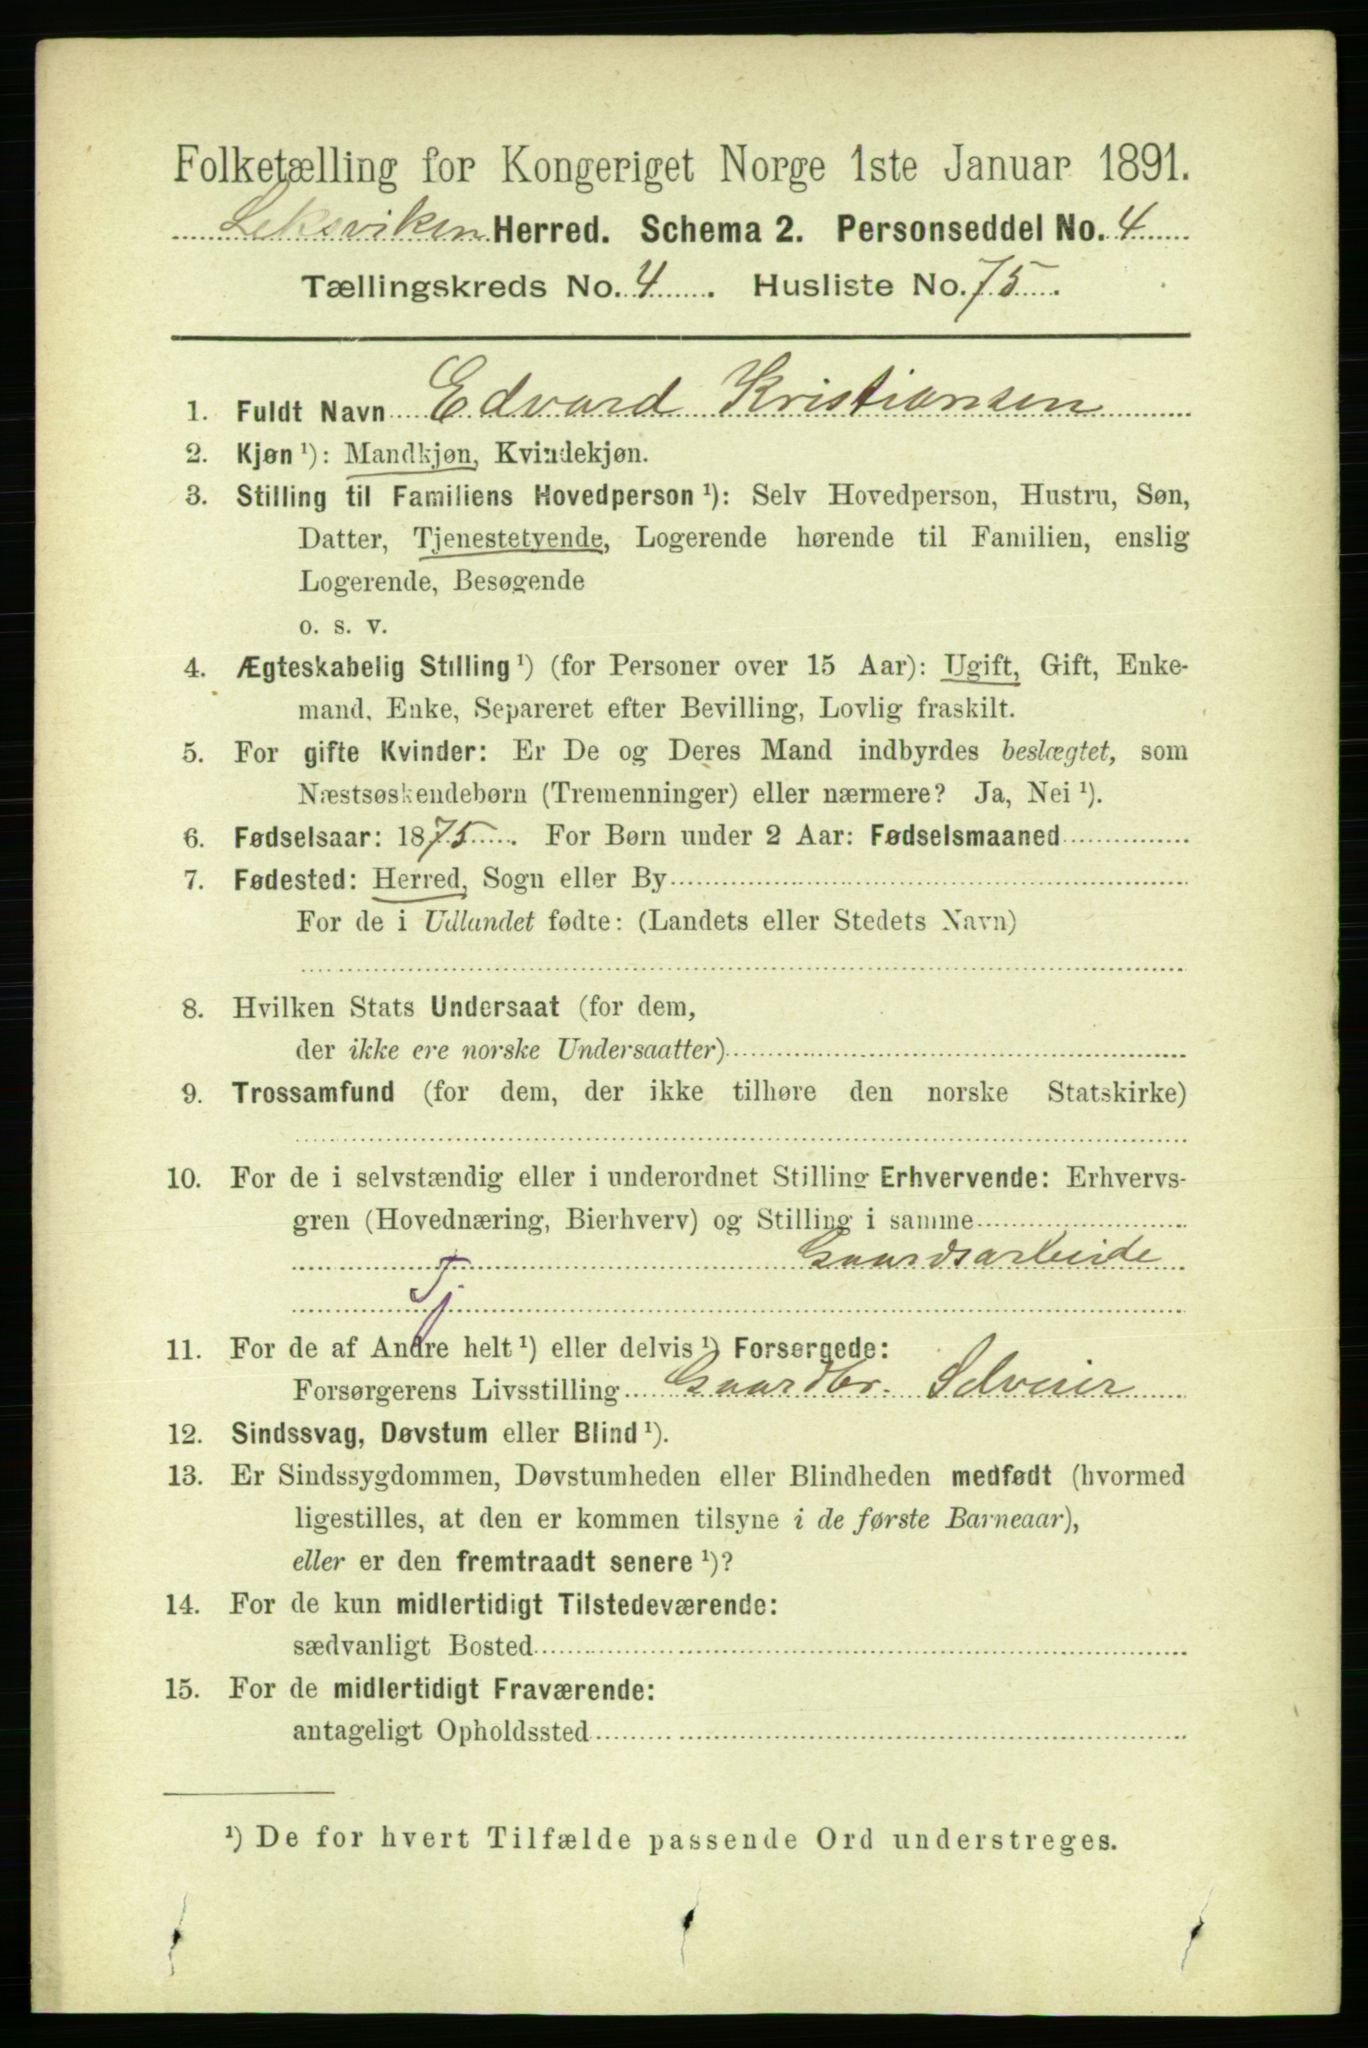 Folketælling for Kongeriget Norge 1ste Januar 1891.
Leksviken Herred. Schema 2. Personseddel No. 4
Tællingskreds No. 4. Husliste No. 75.
1. Fuldt Navn Edvard Kristiansen
2. Kjøn ¹): Mandkjøn, Kvindekjøn.
3. Stilling til Familiens Hovedperson ¹): Selv Hovedperson, Hustru, Søn,
Datter, Tjenestetyende, Logerende hørende til Familien, enslig
Logerende, Besøgende
o. s. v.
4. Ægteskabelig Stilling ¹) (for Personer over 15 Aar): Ugift, Gift, Enke-
mand, Enke, Separeret efter Bevilling, Lovlig fraskilt.
5. For gifte Kvinder: Er De og Deres Mand indbyrdes beslægtet, som
Næstsøskendebørn (Tremenninger) eller nærmere? Ja, Nei ¹).
6. Fødselsaar: 1875. For Børn under 2 Aar: Fødselsmaaned
7. Fødested: Herred, Sogn eller By
For de i Udlandet fødte: (Landets eller Stedets Navn)
8. Hvilken Stats Undersaat (for dem,
der ikke ere norske Undersaatter)
9. Trossamfund (for dem, der ikke tilhøre den norske Statskirke)
10. For de i selvstændig eller i underordnet Stilling Erhvervende: Erhvervs-
gren (Hovednæring, Bierhverv) og Stilling i samme
Gaardsarbeide
Tj
11. For de af Andre helt ¹) eller delvis ¹) Forsørgede:
Forsørgerens Livsstilling Gaardbr. Selveier
12. Sindssvag, Døvstum eller Blind ¹).
13. Er Sindssygdommen, Døvstumheden eller Blindheden medfødt (hvormed
ligestilles, at den er kommen tilsyne i de første Barneaar),
eller er den fremtraadt senere ¹)?
14. For de kun midlertidigt Tilstedeværende:
sædvanligt Bosted
15. For de midlertidigt Fraværende:
antageligt Opholdssted
¹) De for hvert Tilfælde passende Ord understreges.